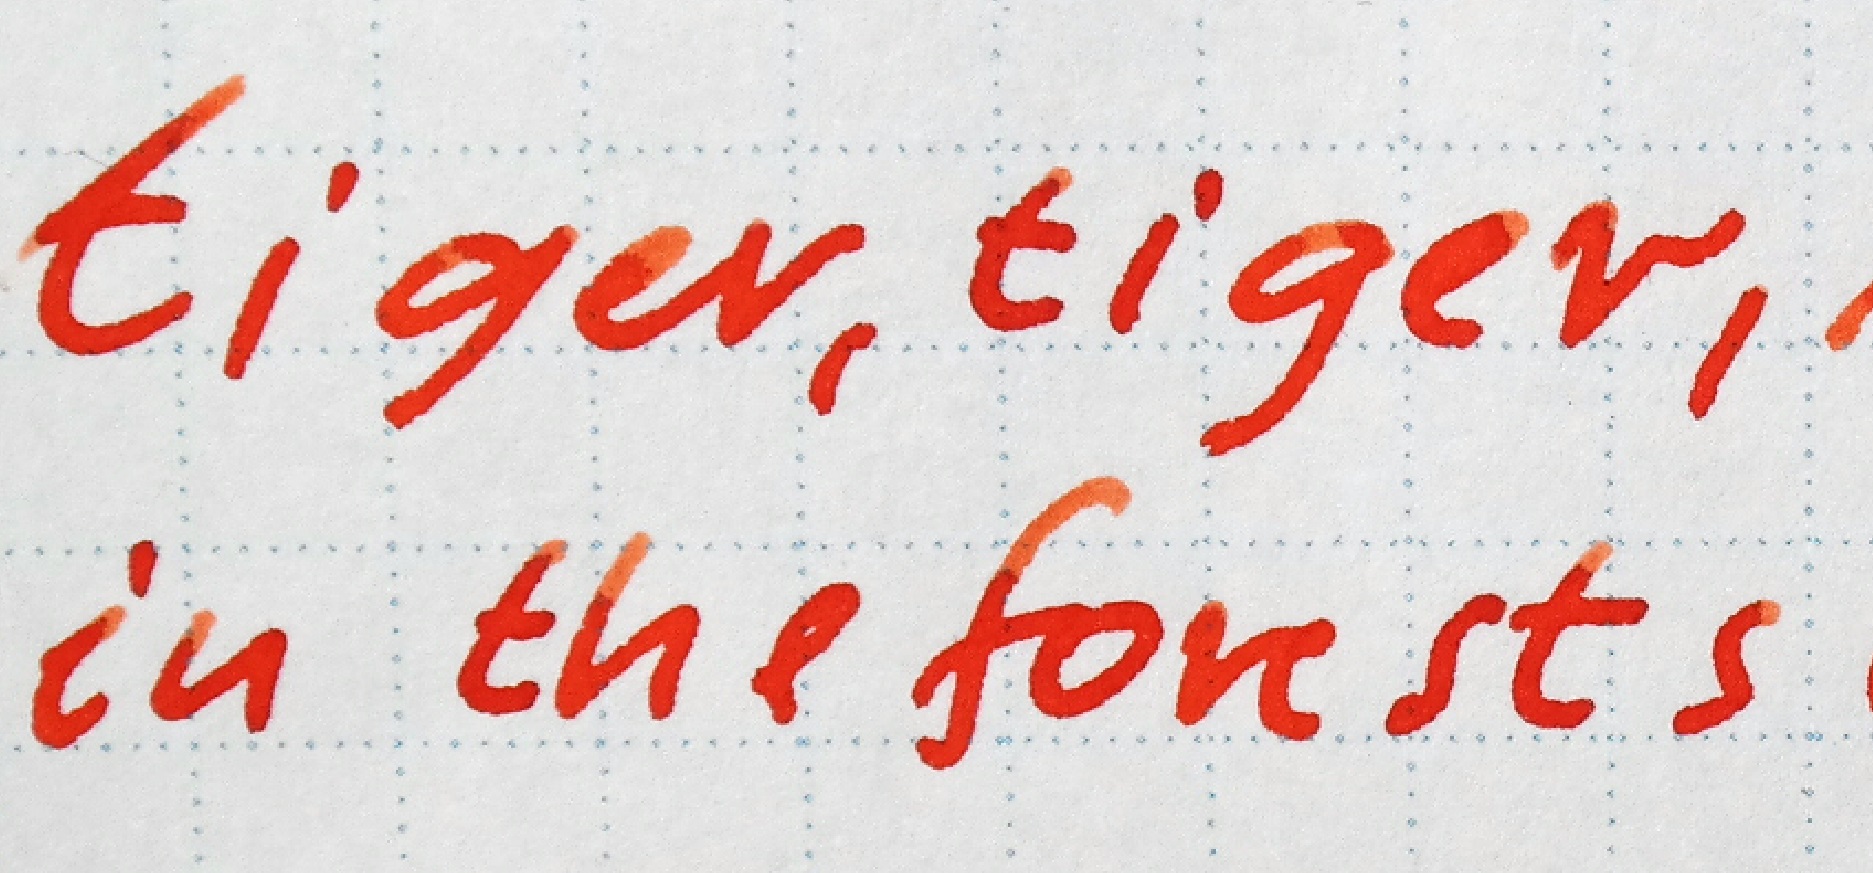 tiger, tiger,
in the forests